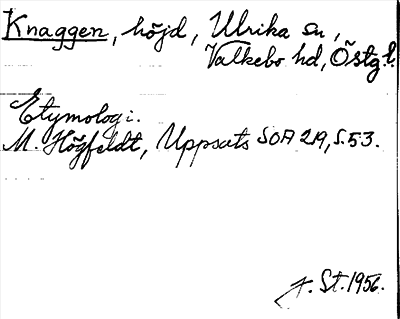 Knaggen, höjd, Ulrika sn,
Valkebo hd, Östg.l.
Etymologi.
M. Högfeldt, Uppsats SOA 219, S. 53.
J. St. 1956.